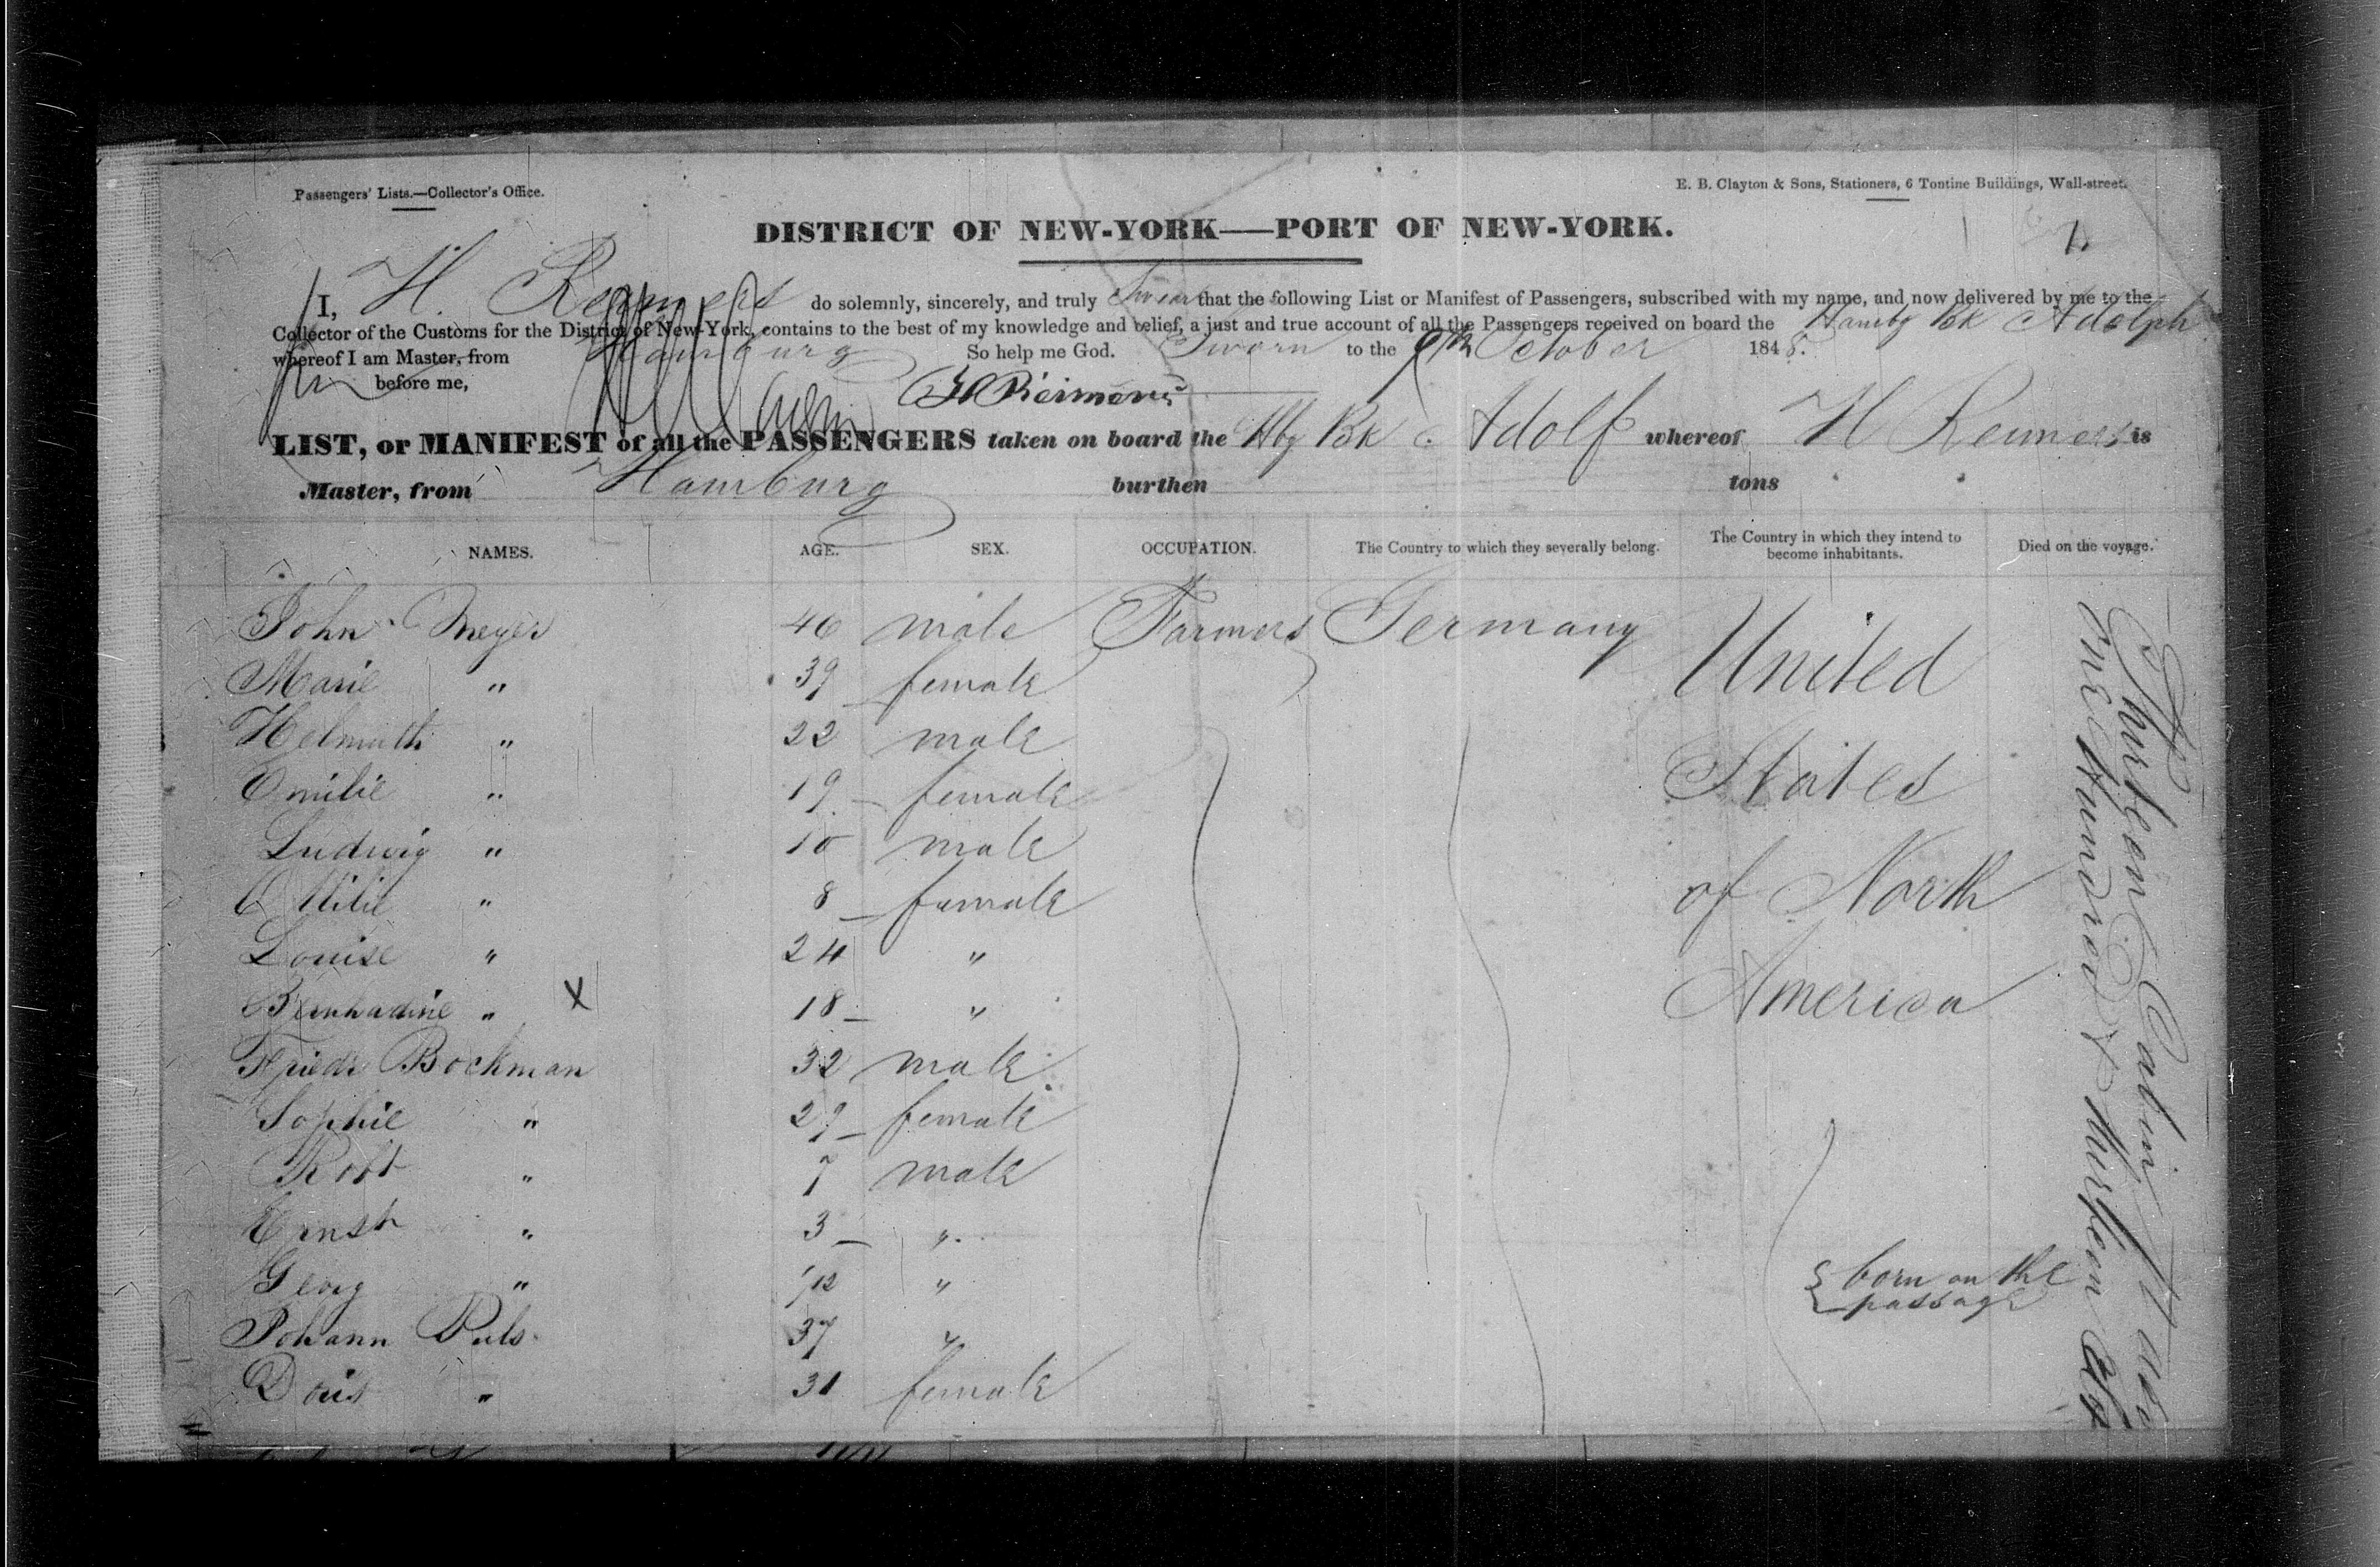 Passengers' Lists.—Collector's Office.
E. B. Clayton & Sons, Stationers, 6 Tontine Buildings, Wall-street.
DISTRICT OF NEW-YORK—PORT OF NEW-YORK.
1.
I, H. Reimers do solemnly, sincerely, and truly Swear that the following List or Manifest of Passengers, subscribed with my name, and now delivered by me to the
Collector of the Customs for the District of New-York, contains to the best of my knowledge and belief, a just and true account of all the Passengers received on board the Hambg Bk Adolph
whereof I am Master, from Hamburg So help me God. Sworn to the 9th October 1848.
before me,
LIST, or MANIFEST of all the PASSENGERS taken on board the Hbg Bk Adolf whereof H Reimers is
Master, from Hamburg burthen tons
NAMES. AGE. SEX. OCCUPATION. The Country to which they severally belong. The Country in which they intend to become inhabitants. Died on the voyage.
John Meyer 46 male Farmers Germany United
Marie " 39 female
Helmuth " 22 male States
Emilie " 19 female
Ludwig " 10 male of North
Ottilie " 8 female
Louise " 24 " America
Bernhardine " X 18 "
Friedr Bockman 32 male
Sophie " 29 female
Robt " 7 male
Ernst " 3 "
Georg " 1/12 " born on the passage
Johann Puls 37 "
Doris " 31 female
Thirteen Cabin
One Hundred & thirteen